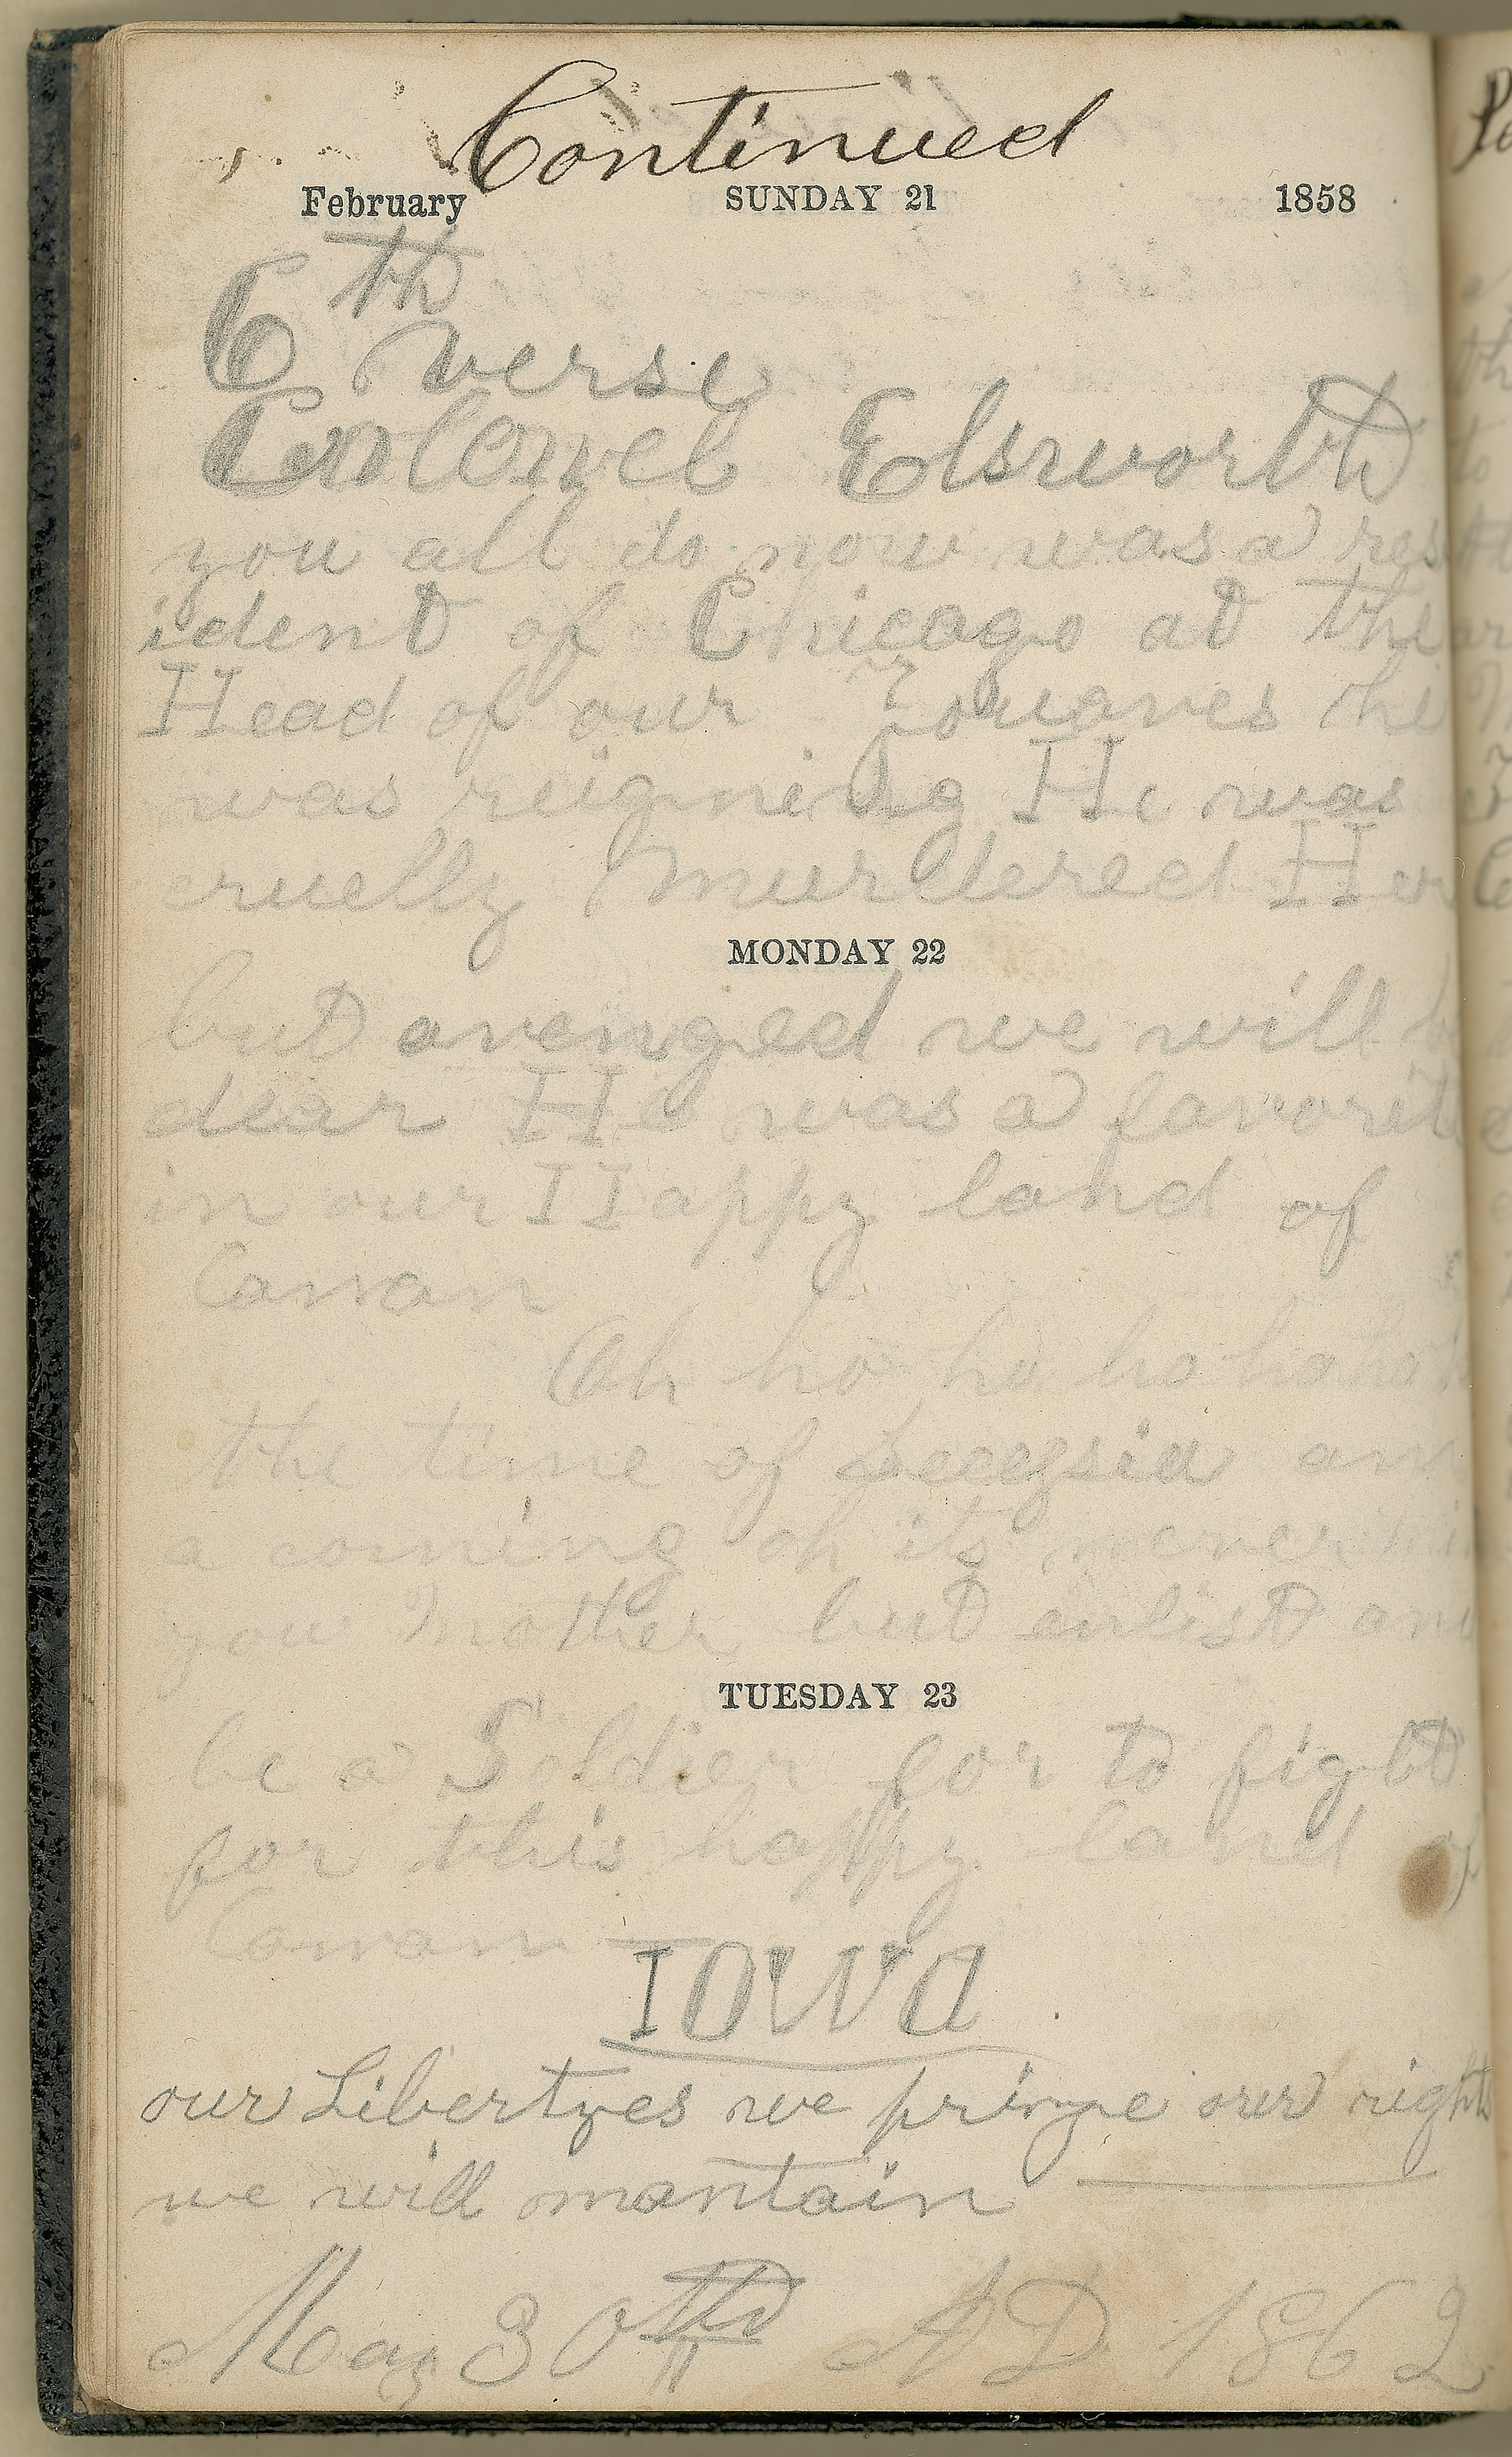 Continued
February SUNDAY 21 1858
6th verse
Conlonel Elsworth
you all do now was a res
ident of Chicago at the
Head of our Zouaves he
was reigning He was
cruelly murdered Her
MONDAY 22
but avenged we will
dear He was a favorit
in our Happy land of
Canan
Oh ho ho ho ha ha
the time of Secezsia am
a coming oh its never
you Mother but enlist and
be a Soldier for to fight
for this happy land of
Canan
IOWA
our Libertyes we prize our rights
we will mantain
May 30th AD 1862